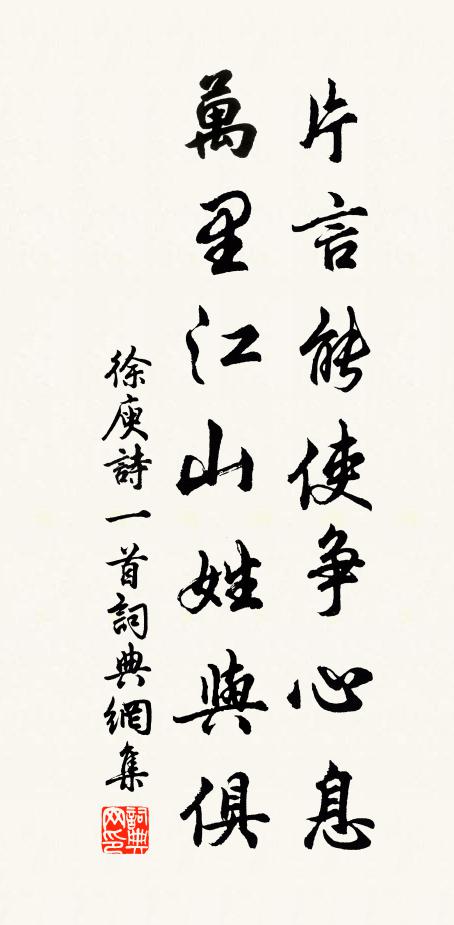 片言能使爭心息
萬里江山姓與俱
徐庾詩一首詞典網集
詞典网印